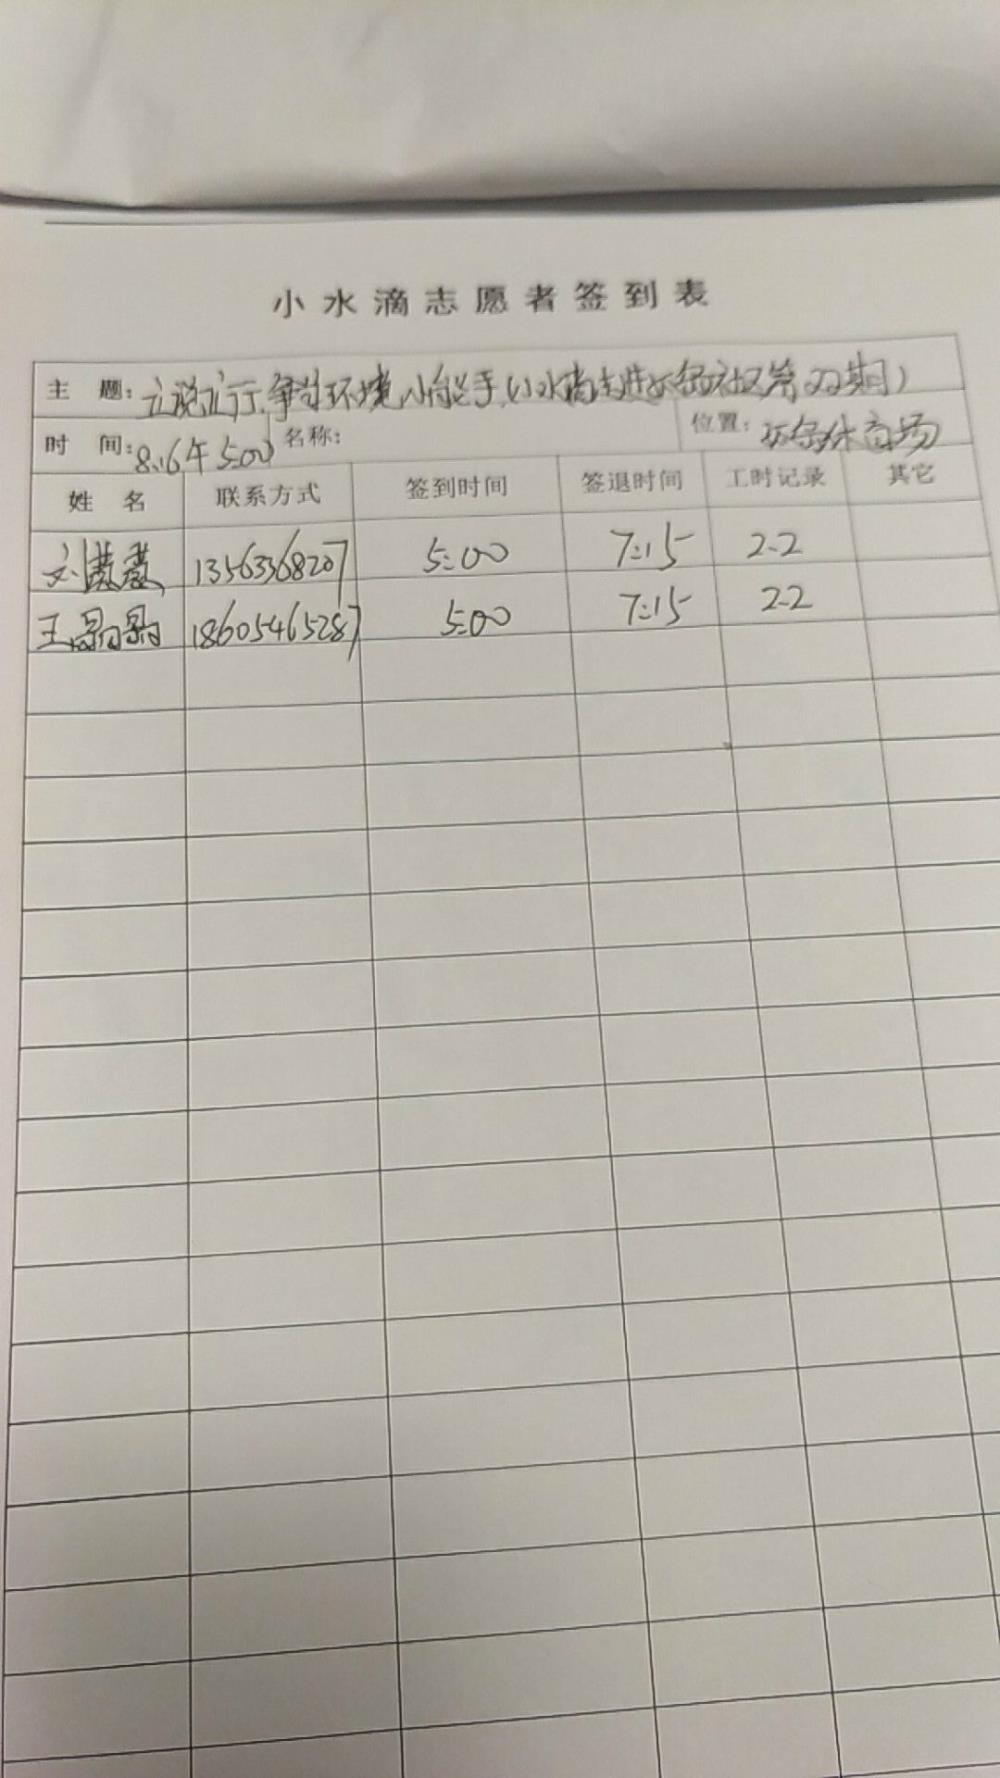 小水滴志愿者签到表
主 题: 立说立行,争当环境小能手(小水滴走进 社区第22期)
时 间: 8.16午5:00 名称: 位置: 商场
姓 名 联系方式 签到时间 签退时间 工时记录 其它
刘 13563368207 5:00 7:15 2.2
王 18605465287 5:00 7:15 2.2